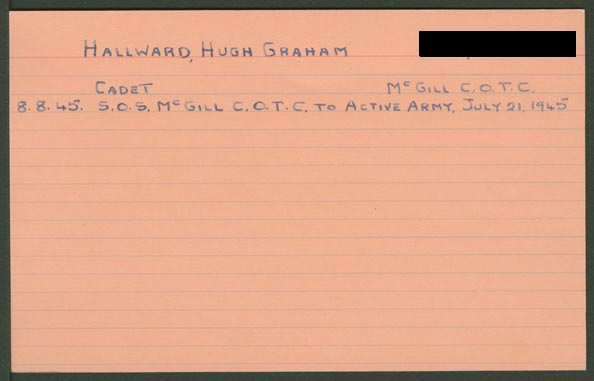 HALLWARD, HUGH GRAHAM
CADET McGILL C.O.T.C.
8.8.45. S.O.S. McGILL C.O.T.C. TO ACTIVE ARMY, JULY 21, 1945